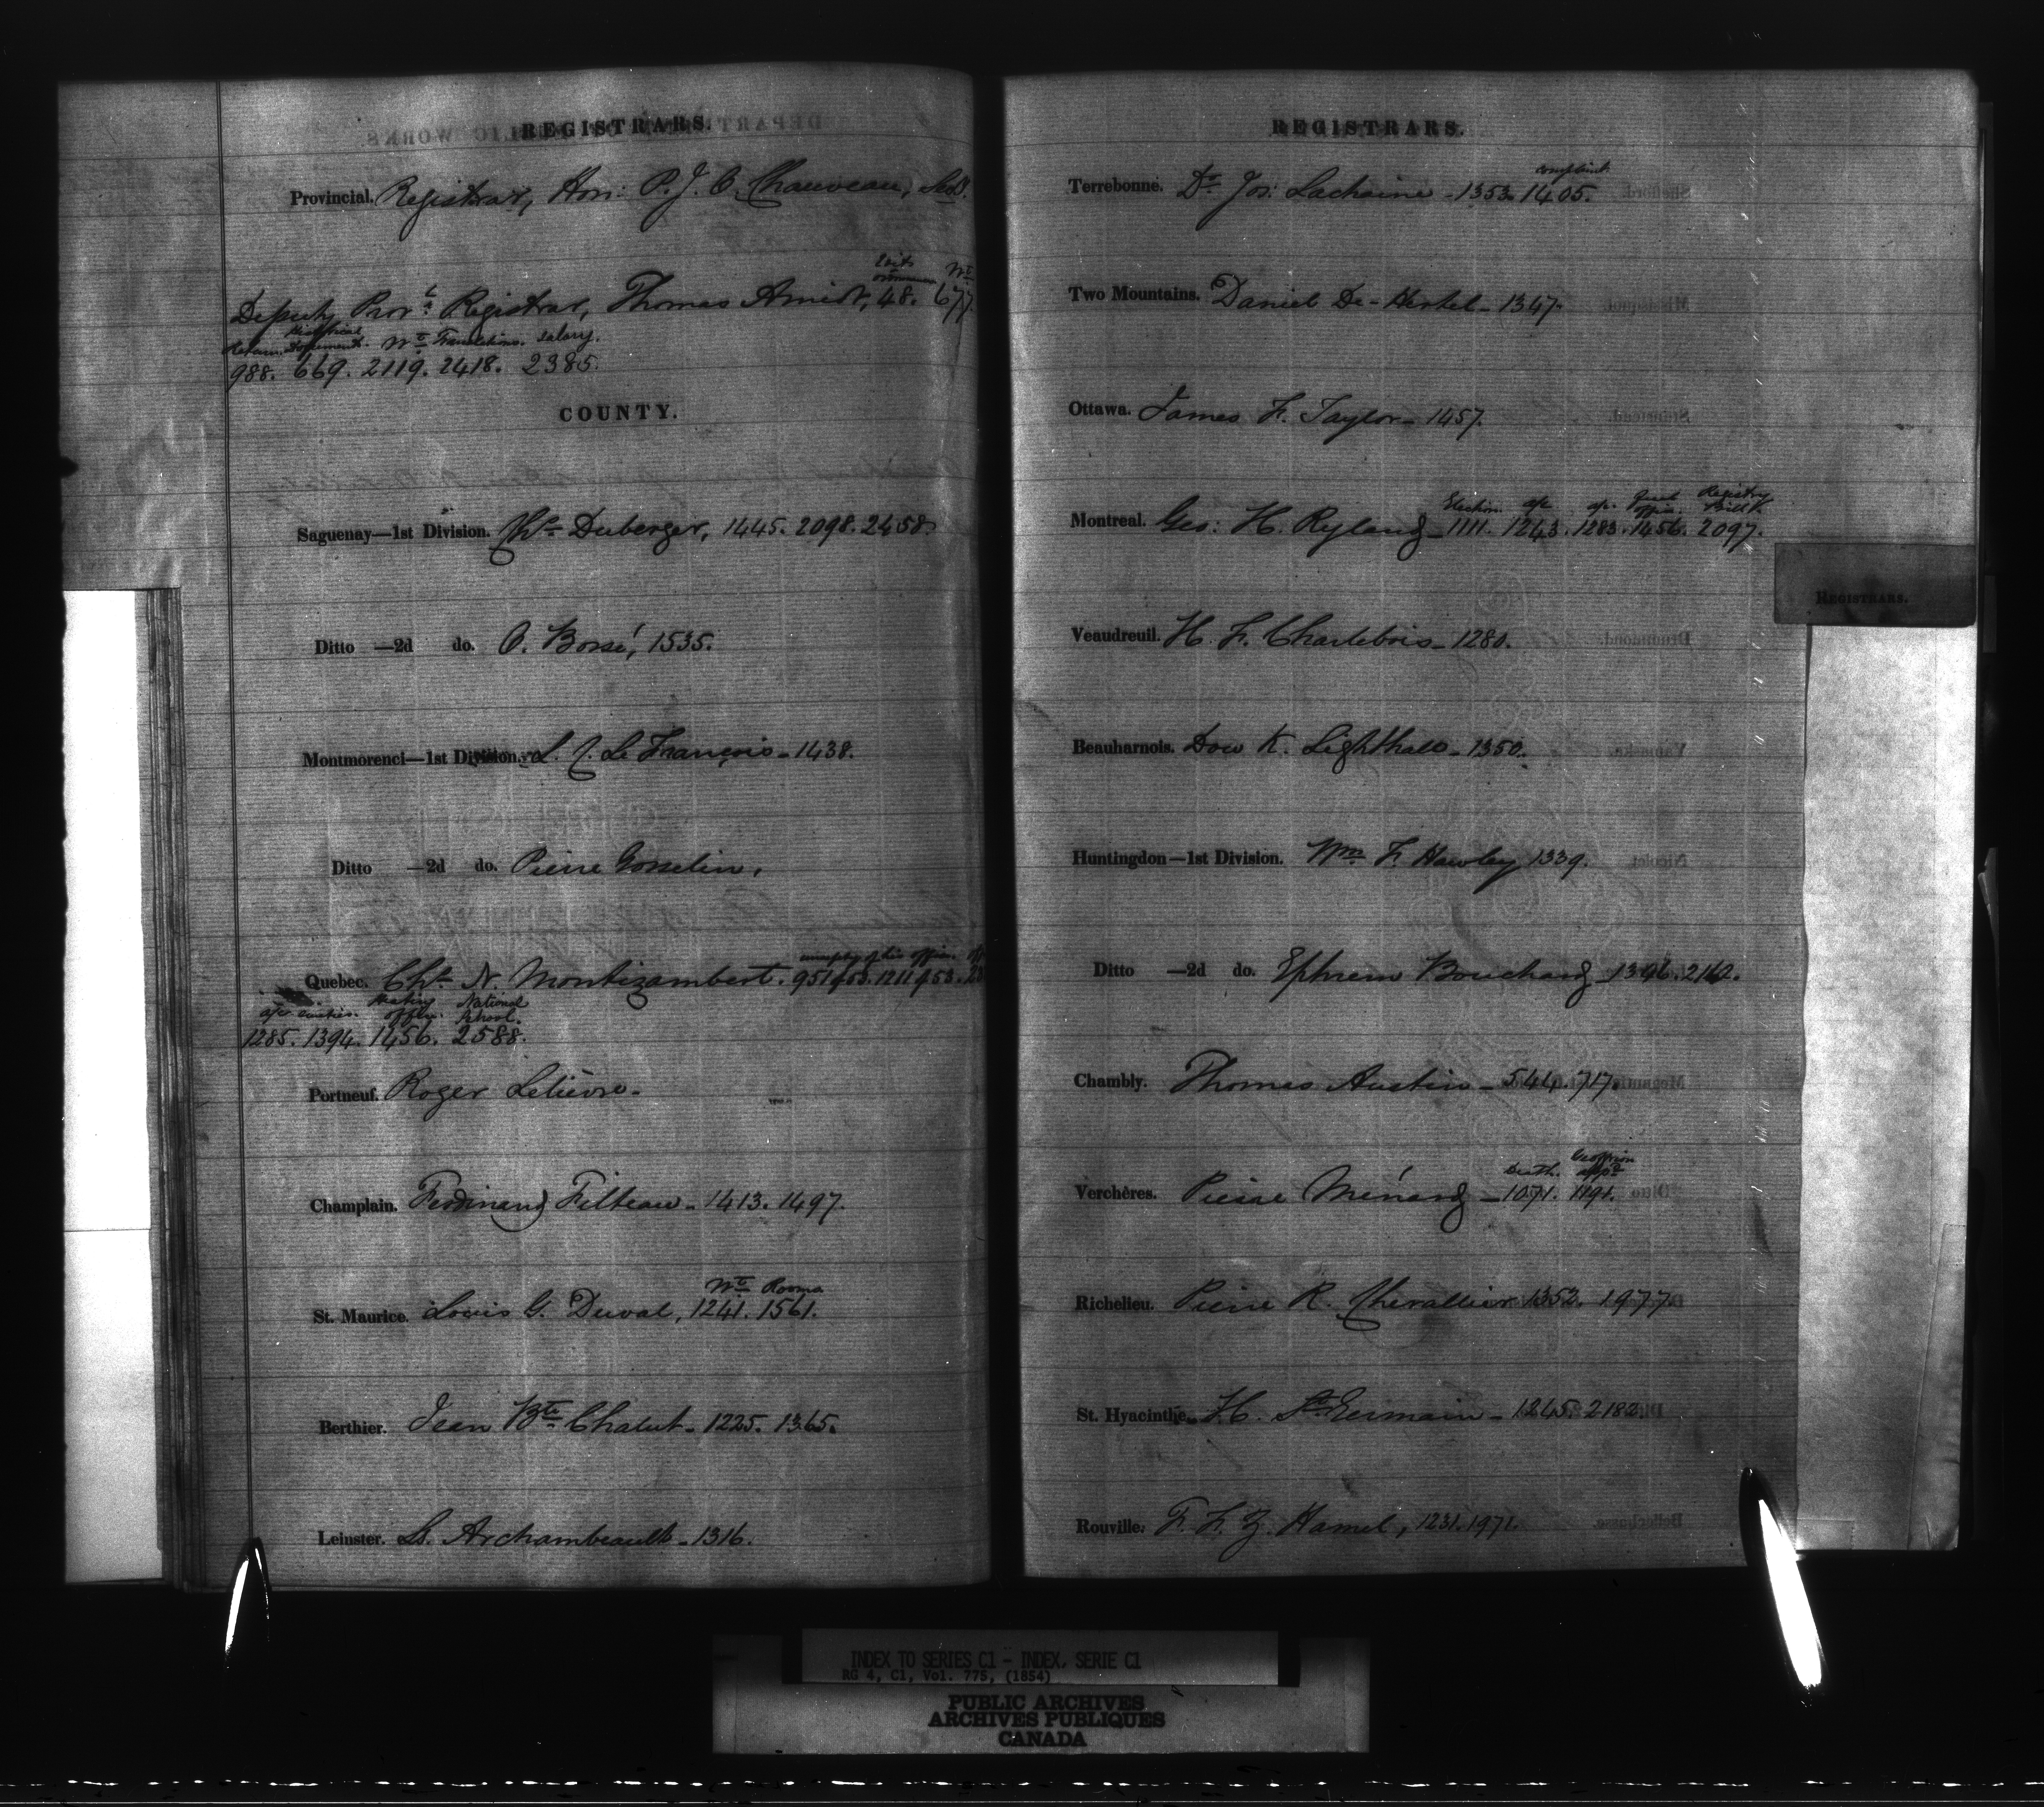 REGISTRARS.
Provincial. Registrar, Hon: P. J. O. Chauveau,
Writs
Deputy Prov.l Registrar, Thomas Amiot, 48. 677.
Return. Historical Documents. Wt Translations. Salary.
988. 669. 2119. 2418. 2385.
COUNTY.
Saguenay—1st Division. Chs Duberger, 1445. 2098. 2458.
Ditto —2d do. O. Bossé, 1535.
Montmorenci—1st Division. L. J. Le François - 1438.
Ditto —2d do. Pierre Gosselin.
of his office.
Quebec. Chs N. Montizambert. 951. 963. 1211. 953.
a/c duties. Heating office. National School.
1285. 1394. 1456. 2588.
Portneuf. Roger Lelièvre -
Champlain. Ferdinand Filteau - 1413. 1497.
Wt Rooms
St. Maurice. Louis G. Duval, 1241. 1561.
Berthier. Jean Bte Chalut - 1225. 1365.
Leinster. Ls. Archambeault - 1316.
REGISTRARS.
complaint
Terrebonne. Dr Jos: Lachaine - 1353. 1405.
Two Mountains. Daniel De-Hertel - 1347.
Ottawa. James F. Taylor - 1457.
Election. a/c a/c Registry Bill
Montreal. Geo: H. Ryland - 1111. 1243. 1283. 1456. 2097.
Veaudreuil. H. F. Charlebois - 1280.
Beauharnois. Dow K. Lighthall - 1350.
Huntingdon—1st Division. Wm F. Hawley 1339.
Ditto —2d do. Ephrem Bouchard - 1346. 2162.
Chambly. Thomas Austin - 544. 717.
Death. Geoffrion appd
Verchères. Pierre Ménard - 1071. 1191.
Richelieu. Pierre R. Chevallier 1352. 1977.
St. Hyacinthe. H. St Germain - 1245. 2182.
Rouville. F. F. Z. Hamel, 1231. 1971.
REGISTRARS.
INDEX TO SERIES C1 - INDEX, SERIE C1
RG 4, C1, Vol. 775, (1854)
PUBLIC ARCHIVES
ARCHIVES PUBLIQUES
CANADA